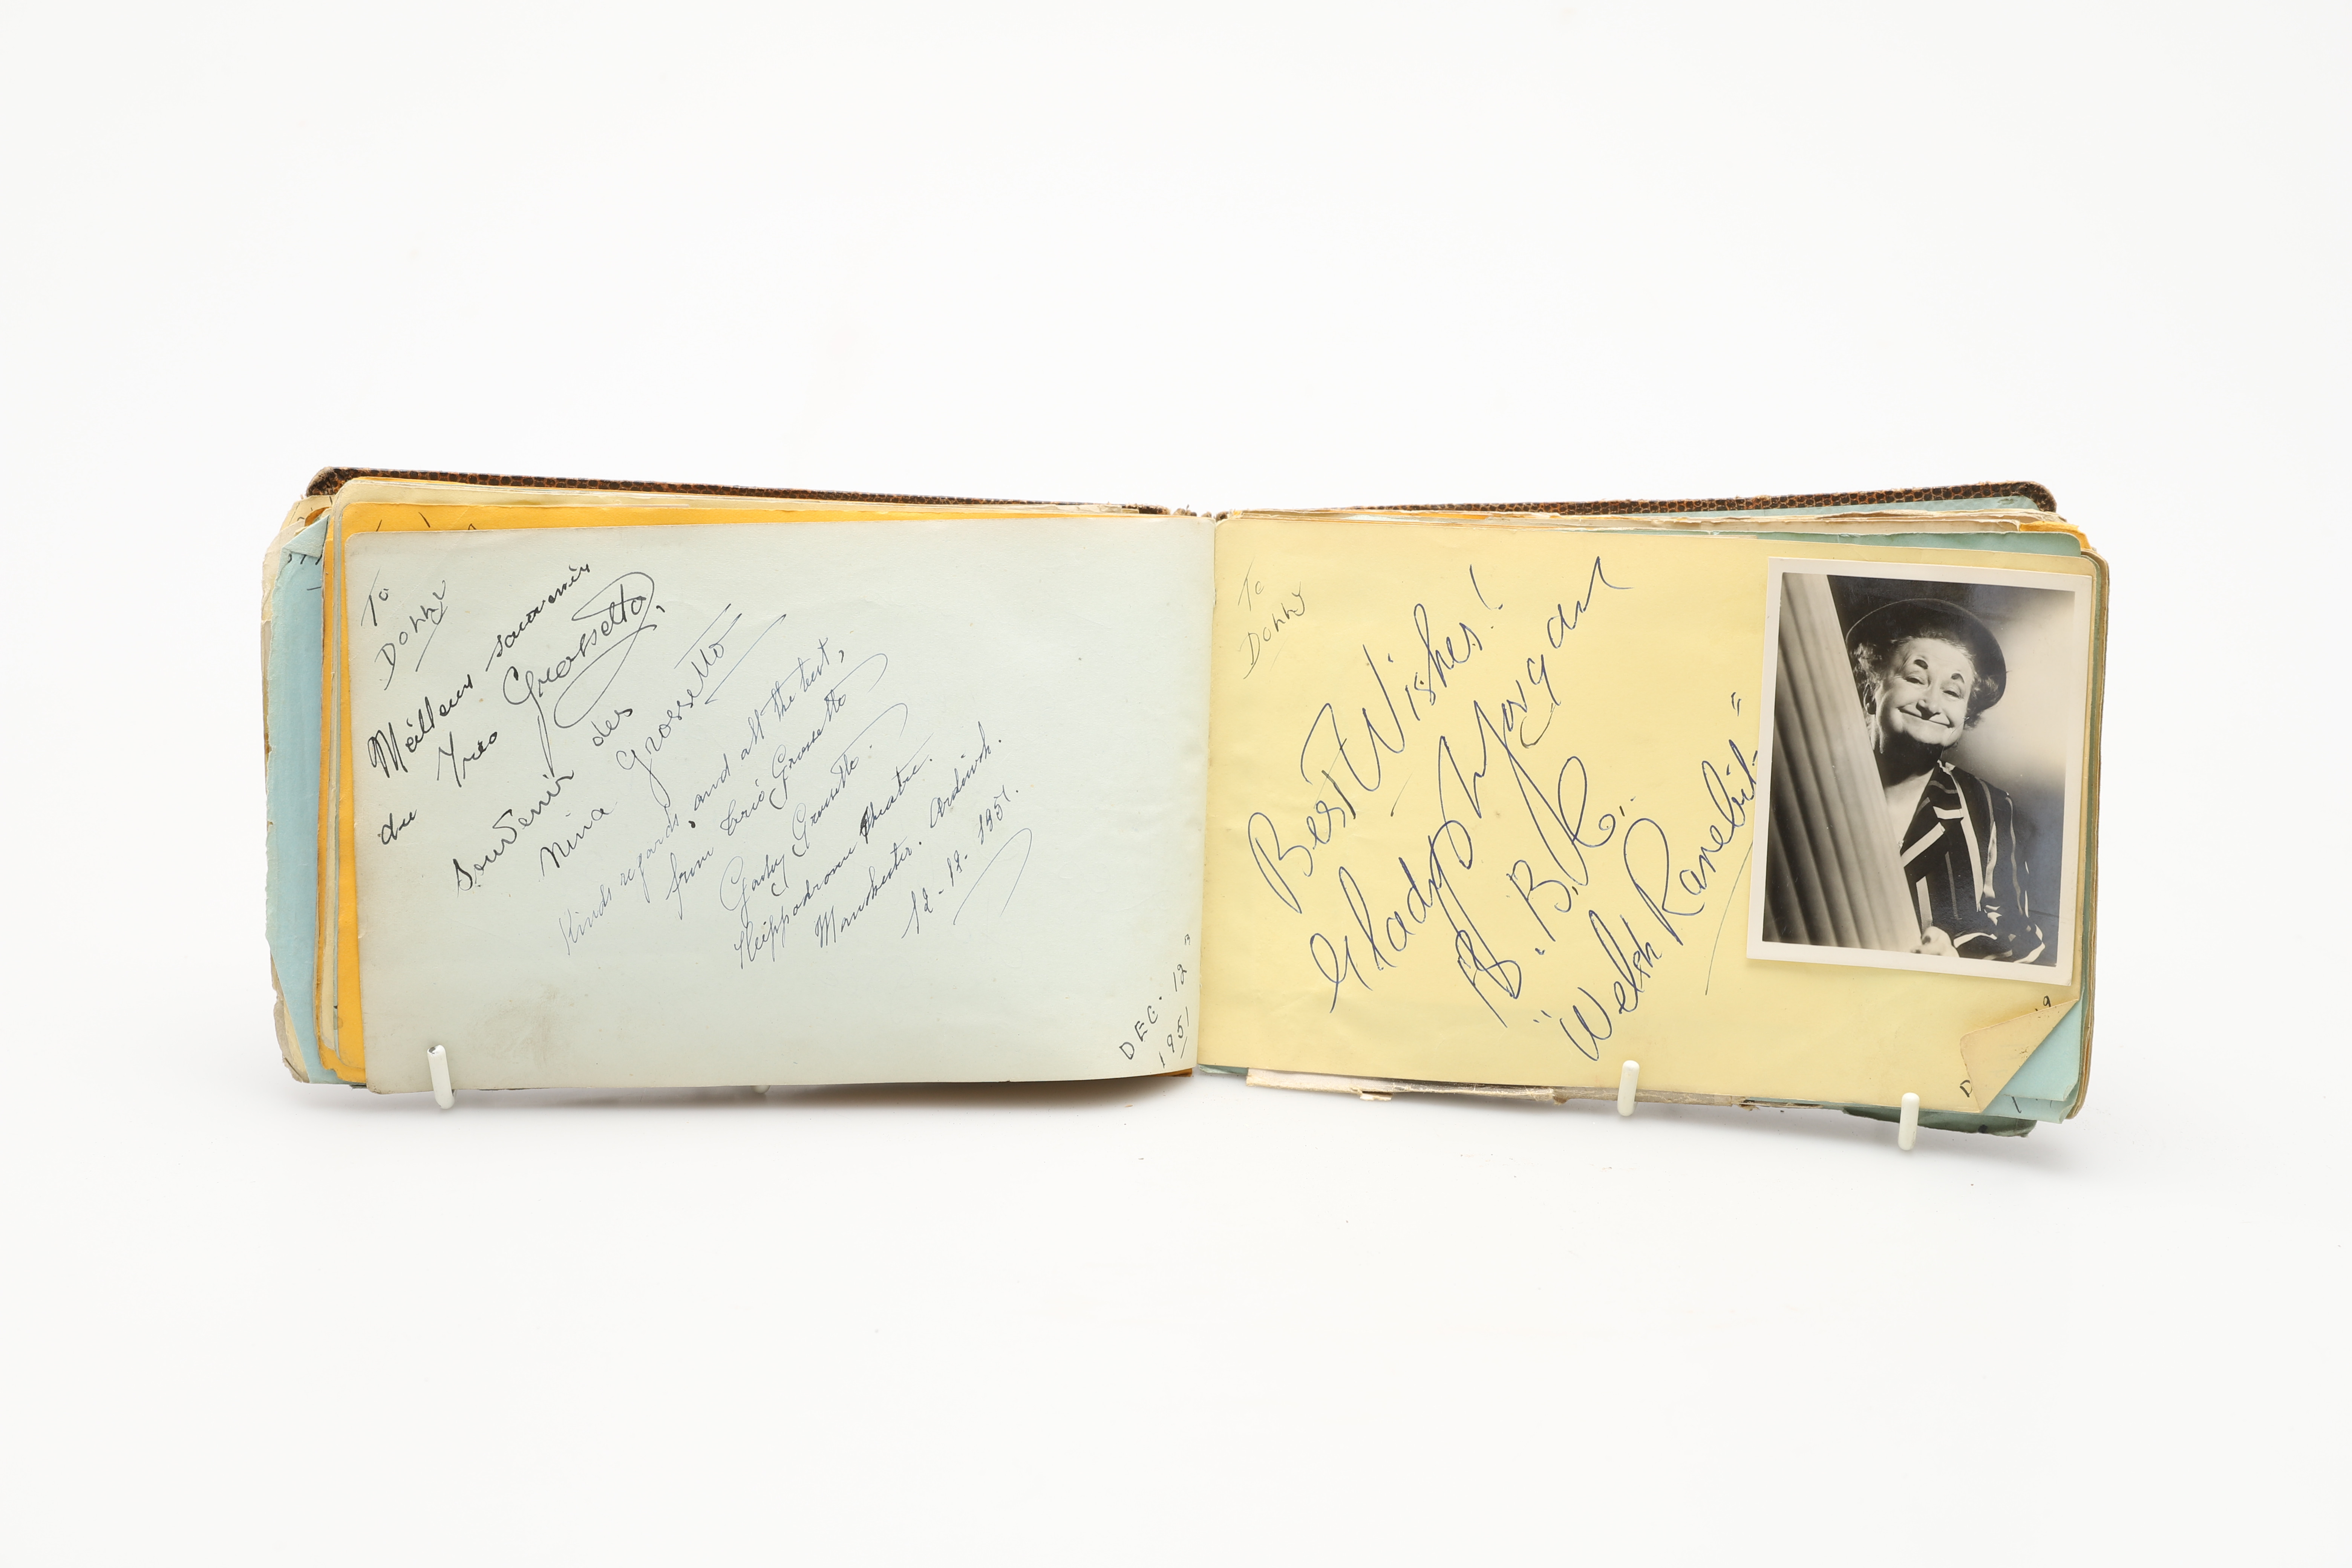 To
Donny
Meilleur souvenir
du Trio Grossetto.
Souvenir des
Nina Grossetto
Kinds regards, and all the best,
from trio Grossetto
Gaby Grossetto.
Heippodrome Theatre.
Manchester. Ardwick.
12-12-1951.
DEC. 12
1951
To
Donny
Best Wishes!
Gladys Morgan
B.B.C.
"Welsh Rarebit"